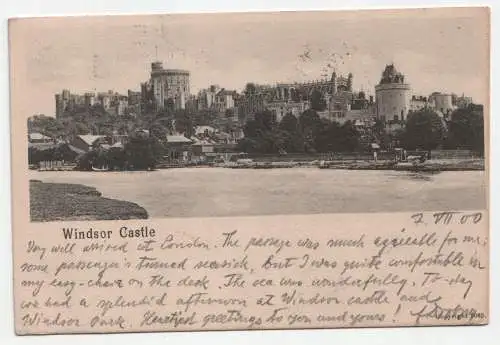 Windsor Castle
7. VII 00
Very well arrived at London. The passage was much agreeable for me;
some passenger's turned seasick, but I was quite comfortable in
my easy-chair on the desk. The sea was wonderfully. To-day
we had a splendid afternoon at Windsor castle and
Windsor Park. Heartied greetings to you and yours!